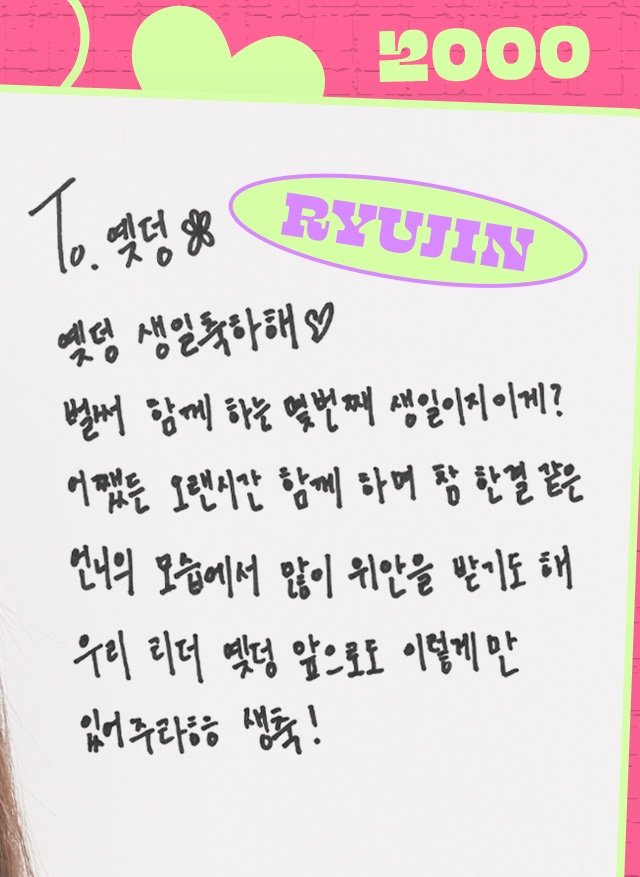 2000
To. 옏덩
RYUJIN
옏덩 생일축하해♡
벌써 함께 하는 몇번째 생일이지이게?
어쨌든 오랜시간 함께 하며 참 한결 같은
언니의 모습에서 많이 위안을 받기도 해
우리 리더 옏덩 앞으로도 이렇게만
있어주라흐흐 생축!